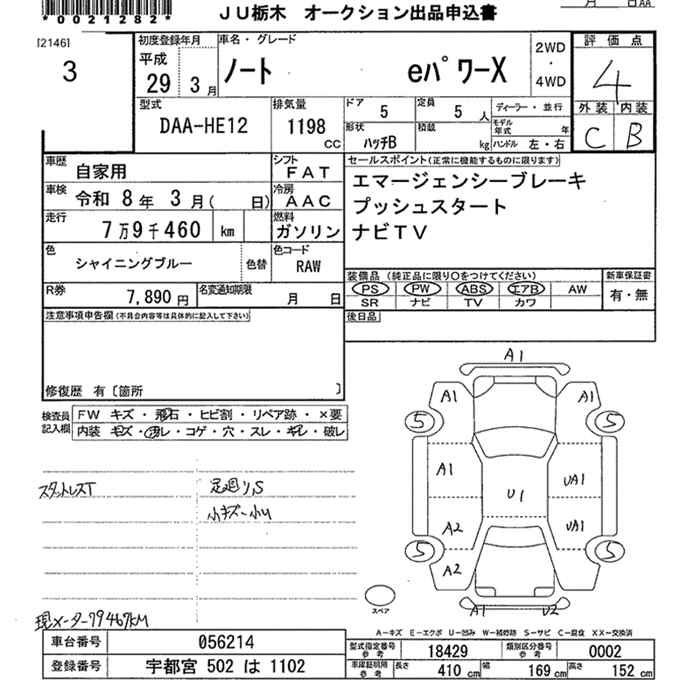 *0021282*
JU栃木 オークション出品申込書
月 日AA
[2146]
3
初度登録年月
平成
29年 3月
車名・グレード
ノート eパワーX
2WD
・
4WD
評価点
4
外装 内装
C B
型式
DAA-HE12
排気量
1198
CC
ドア 5
定員 5 人
ディーラー・並行
形状 ハッチB
積載 kg
モデル年式 年
ハンドル 左・右
車歴 自家用
シフト FAT
車検 令和 8年 3月( 日)
冷房 AAC
走行 7万9千460 km
燃料 ガソリン
色 シャイニングブルー
色替
色コード RAW
R券 7,890円
名変通知期限 月 日
セールスポイント(正常に機能するものに限ります)
エマージェンシーブレーキ
プッシュスタート
ナビTV
装備品(純正品に限り○をつけてください)
PS PW ABS エアB AW
SR ナビ TV カワ
新車保証書
有・無
後日品
注意事項申告欄(不具合内容等は具体的に記入して下さい)
修復歴 有〔箇所 〕
検査員
記入欄
FW キズ・飛石・ヒビ割・リペア跡・×要
内装 キズ・汚レ・コゲ・穴・スレ・キレ・破レ
スタットレスT
足廻リ,S
小キズ-小U
現メーター79467KM
A1
A1 A1
5 5
A1 UA1
U1
A2 UA1
5 5
A2
A1 U2
スペア
A-キズ E-エクボ U-凹み W-補修跡 S-サビ C-腐食 XX-交換済
車台番号 056214
登録番号 宇都宮 502 は 1102
型式指定番号 参考 18429
類別区分番号 参考 0002
車庫証明用 参考 長さ 410 cm 幅 169 cm 高さ 152 cm